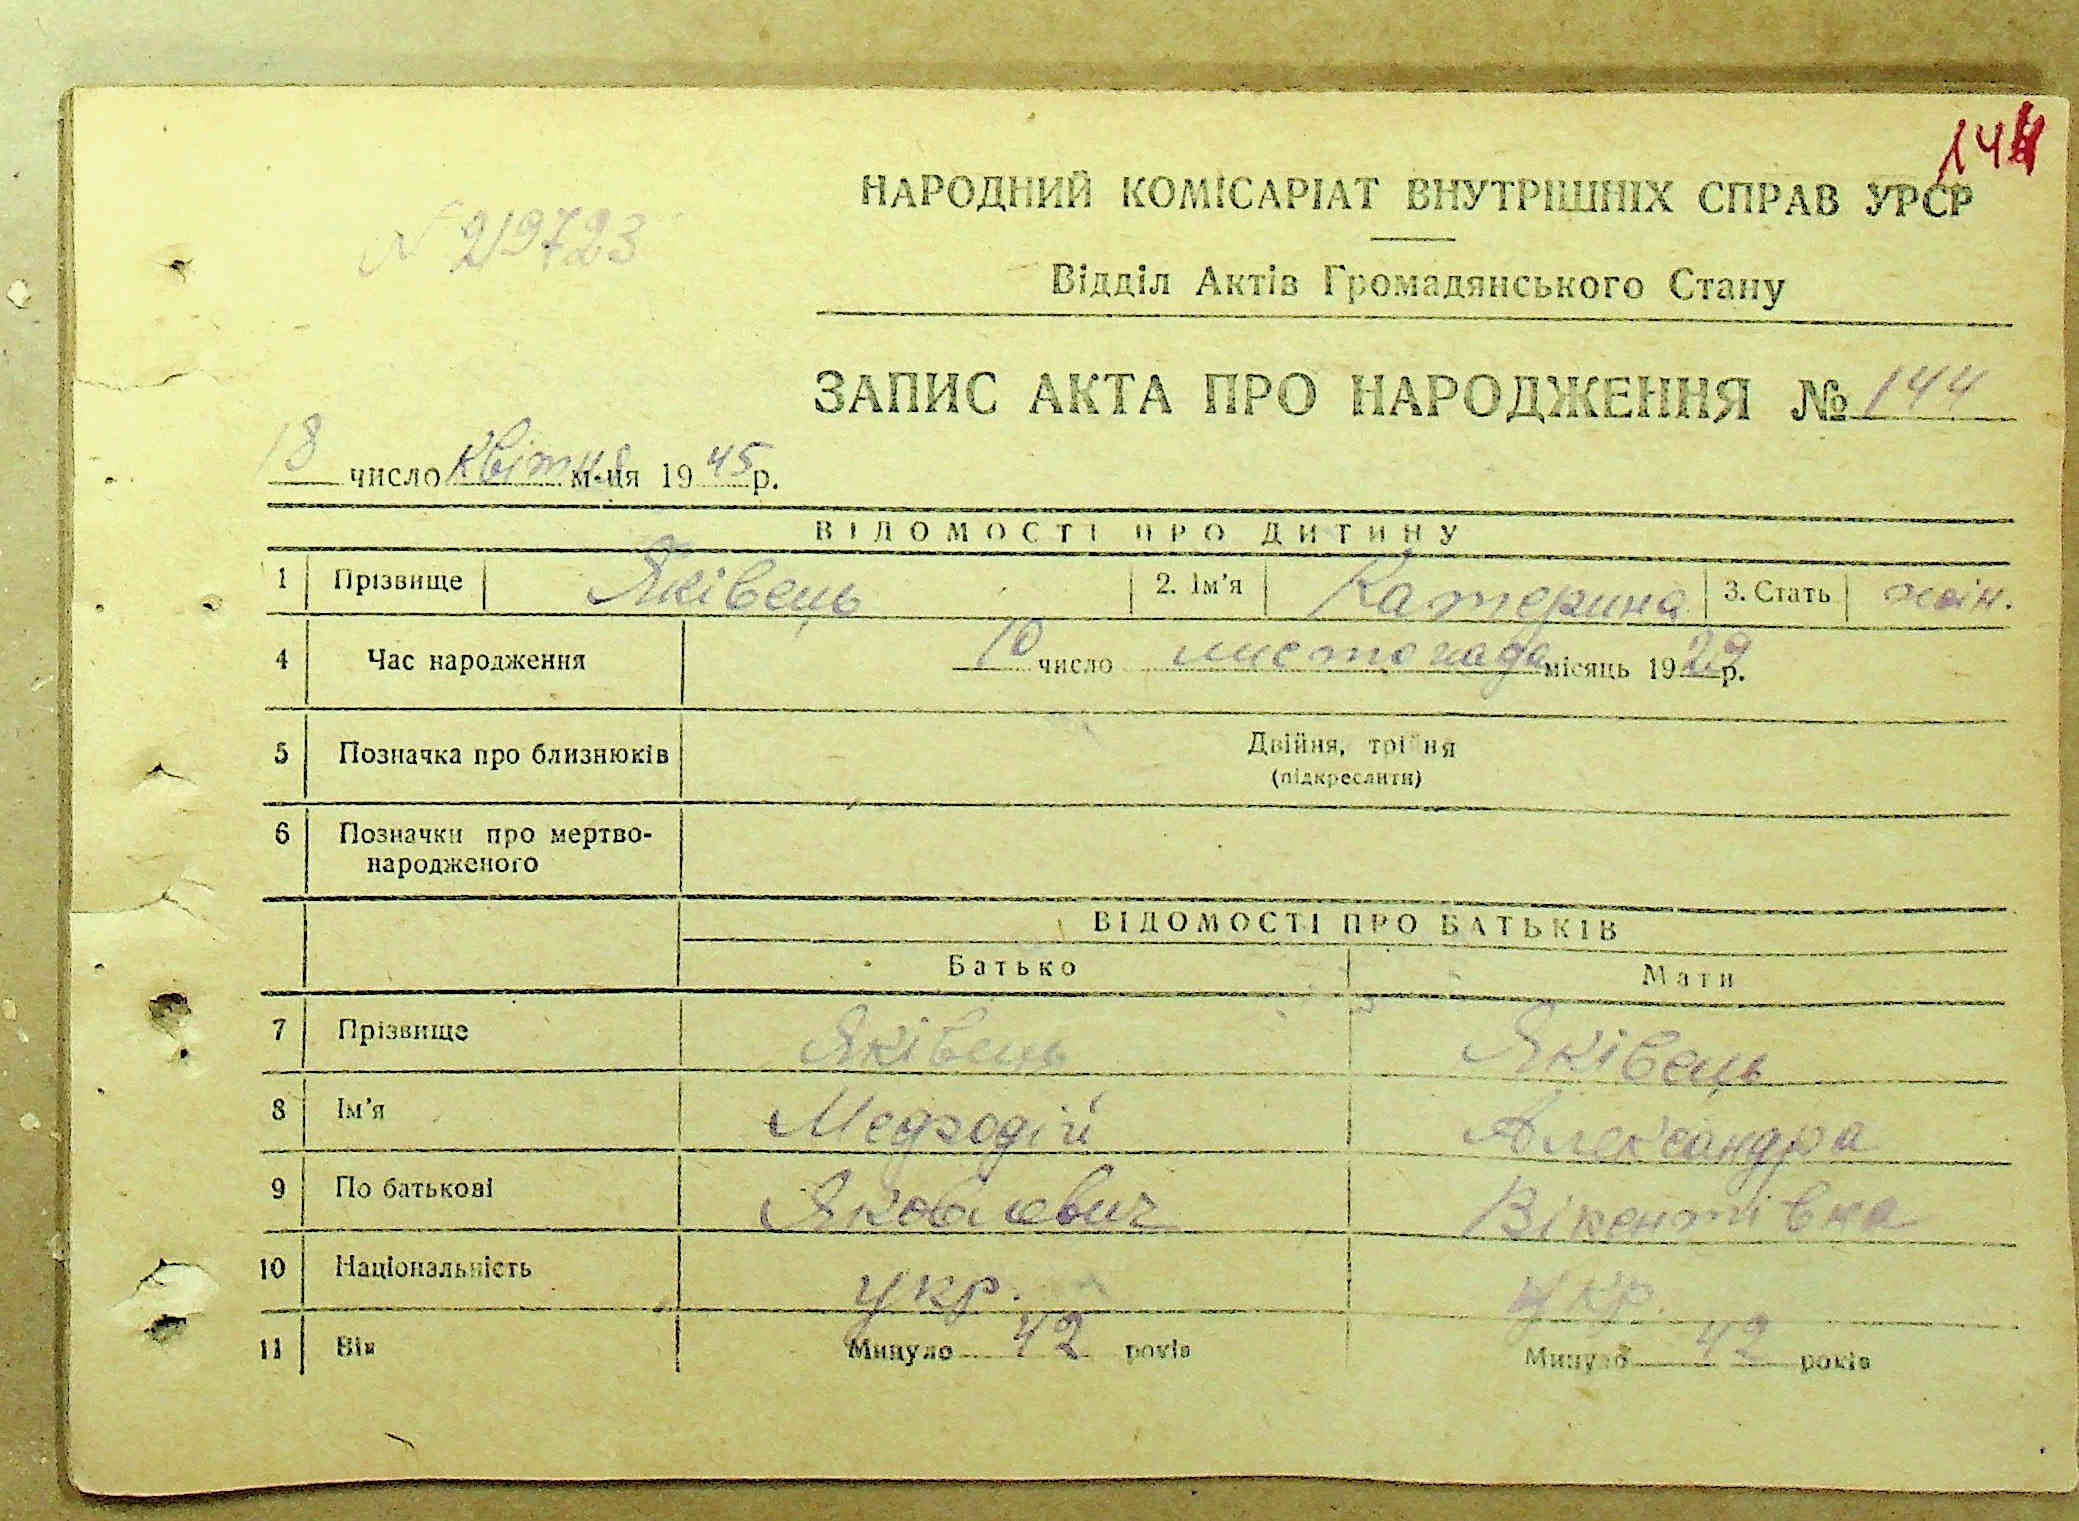 144
№ 219723
НАРОДНИЙ КОМІСАРІАТ ВНУТРІШНІХ СПРАВ УРСР
Відділ Актів Громадянського Стану
ЗАПИС АКТА ПРО НАРОДЖЕННЯ № 144
18 число квітня м-ця 1945 р.
ВІДОМОСТІ ПРО ДИТИНУ
1 Прізвище Яківець 2. Ім'я Катерина 3. Стать жін.
4 Час народження 10 число листопада місяць 1929 р.
5 Позначка про близнюків Двійня, трійня
(підкреслити)
6 Позначки про мертво-
народженого
ВІДОМОСТІ ПРО БАТЬКІВ
Батько Мати
7 Прізвище Яківець Яківець
8 Ім'я Александра
9 По батькові Яковлевич Вікентівна
10 Національність укр. укр.
11 Вік Минуло 42 років Минуло 42 років